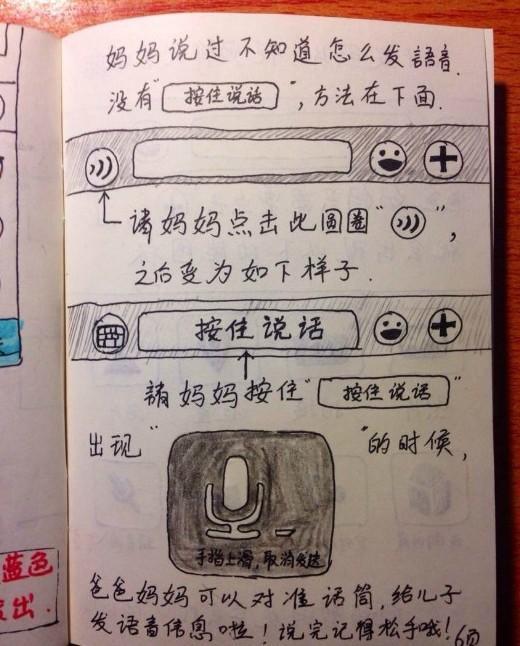 妈妈说过不知道怎么发語音.
没有"按住说话",方法在下面.
请妈妈点击此圆圈" ",
之后变为如下样子.
按住说话
請妈妈按住"按住说话"
出现" "的时候,
手指上滑,取消发送
爸爸妈妈可以对准话筒,给儿子
发语音信息啦!说完记得松手哦!
6页
蓝色
出.